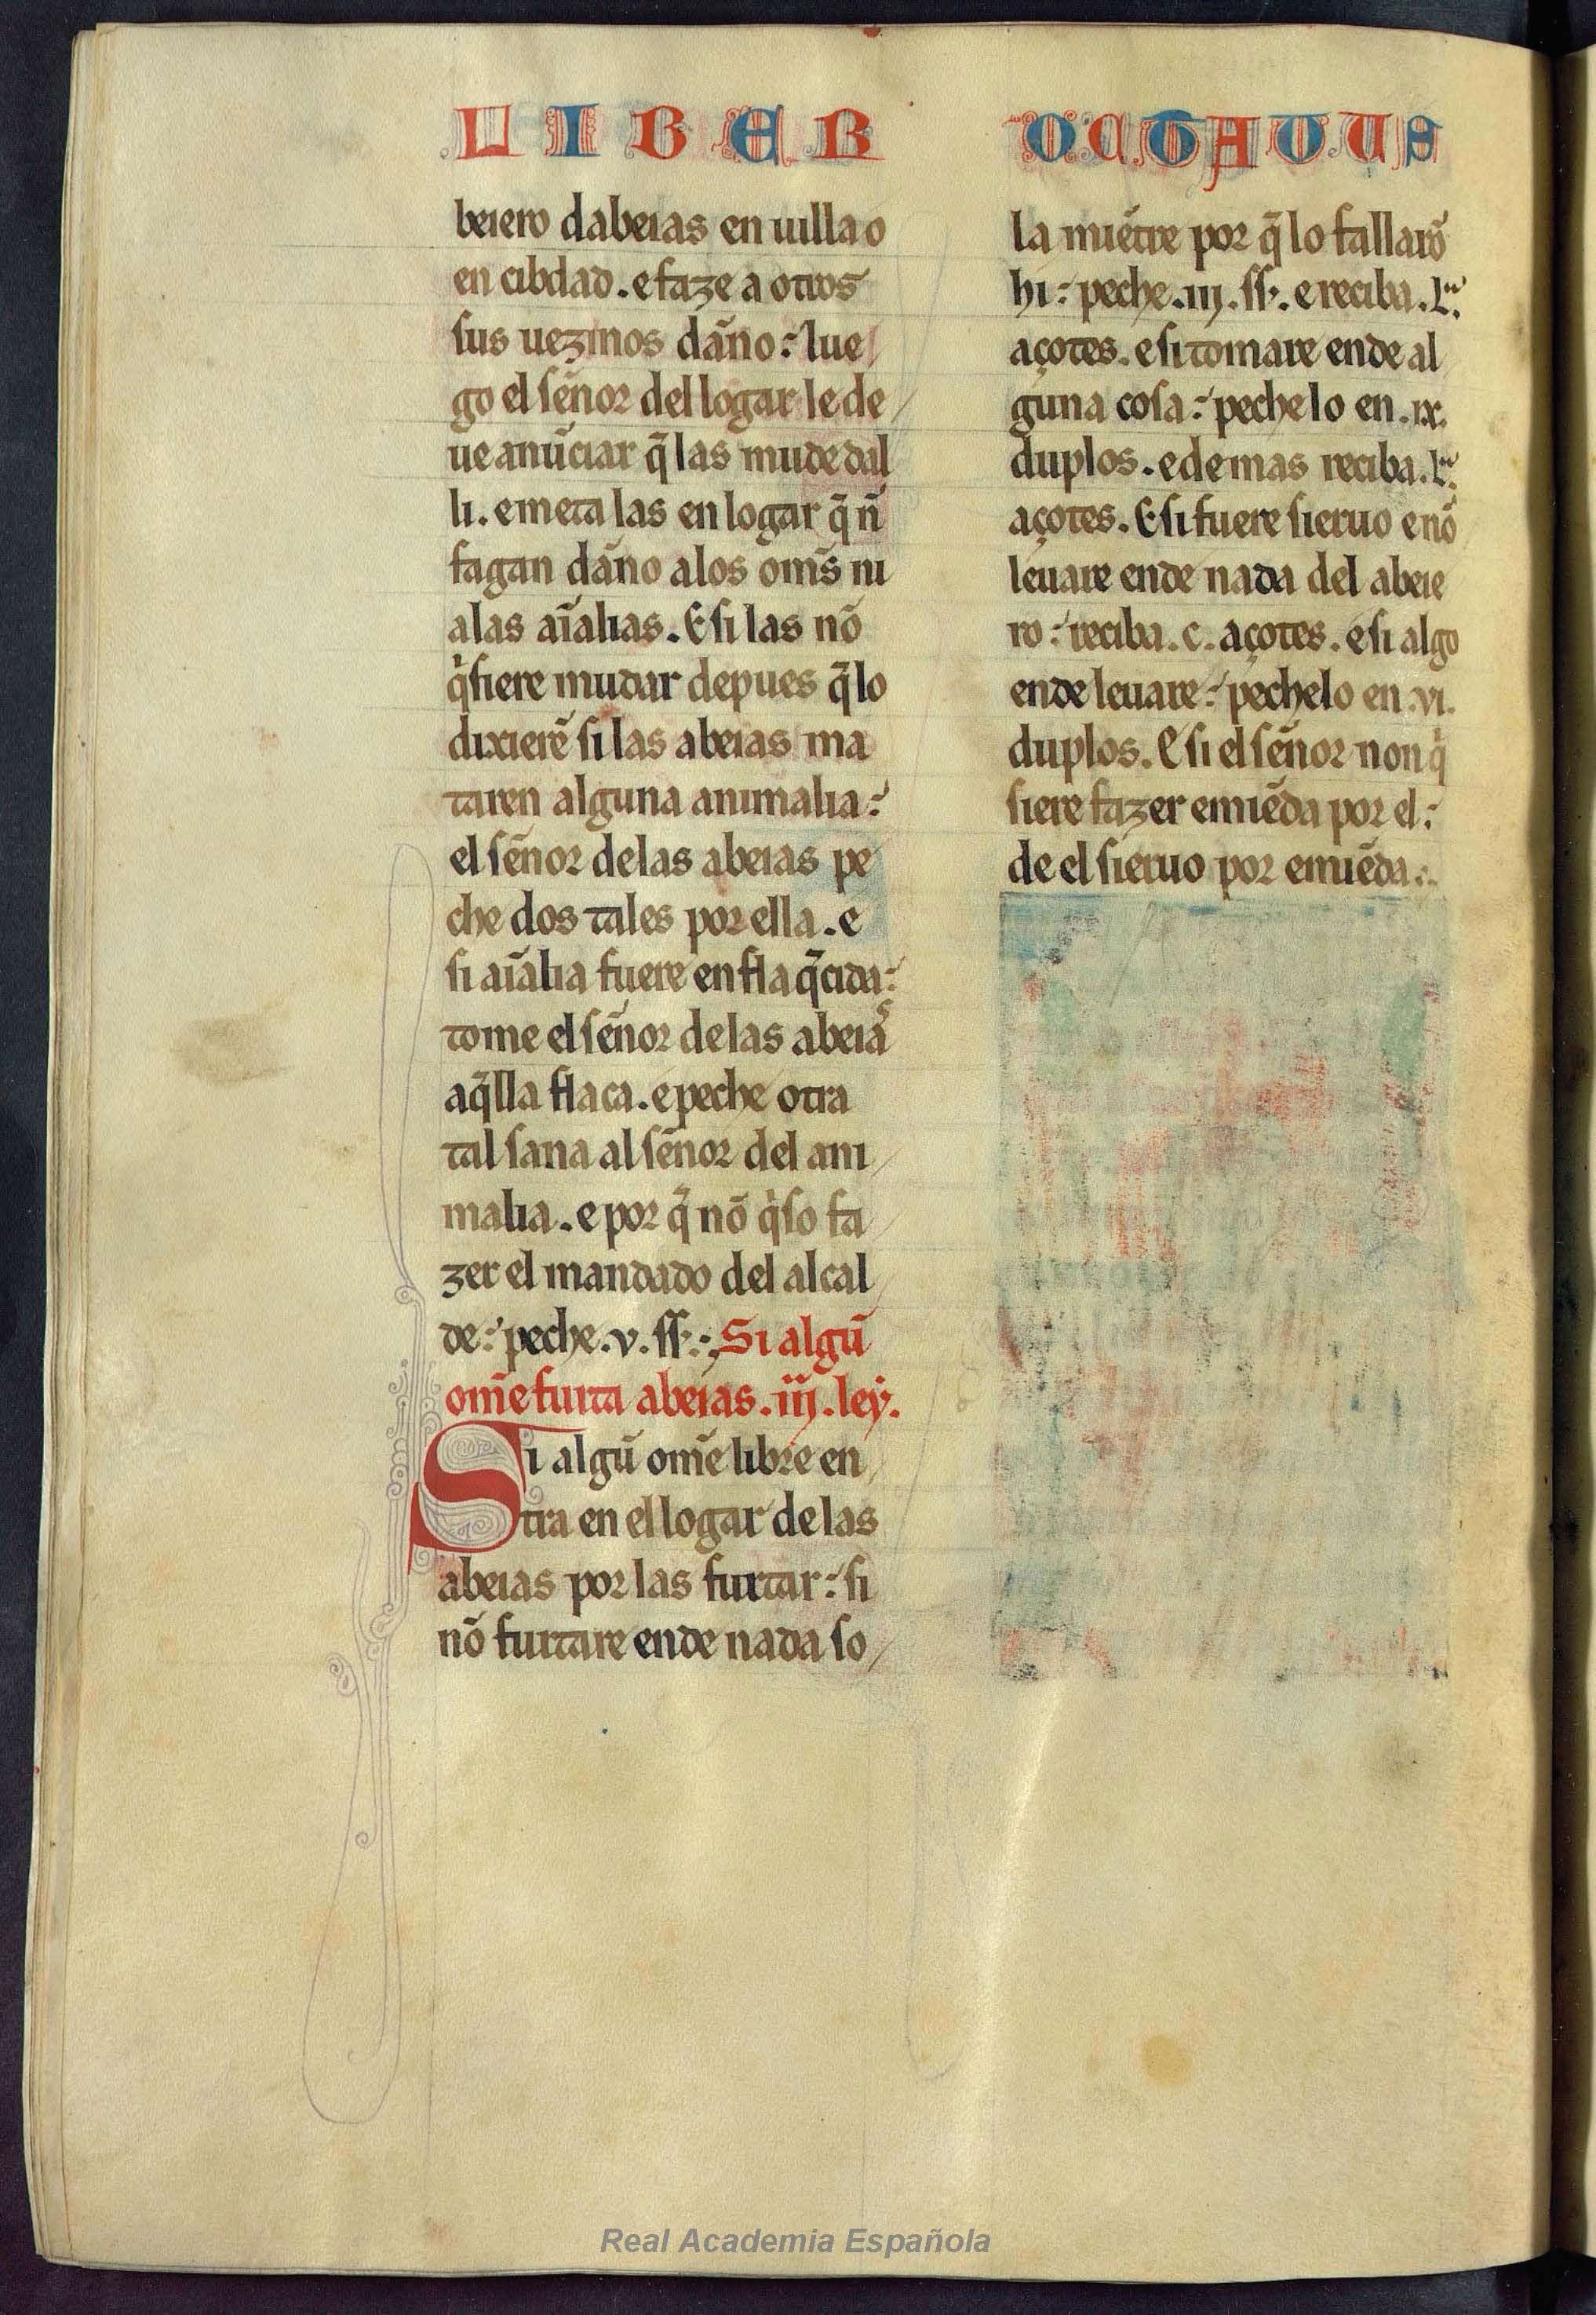 LIBER OCTAUUS
beiero dabeias en uilla o
en cibdad. e faze a otros
sus uezinos dãno: lue
go el sẽnor del logar le de
ue anũciar q̃ las mude dal
li. e meta las en logar q̃ ñ
fagan dãno alos om̃s ni
alas aĩalias. E si las nõ
q'siere mudar depues q̃ lo
dixierẽ si las abeias ma
taren alguna animalia:
el sẽnor delas abeias pe
che dos tales por ella. e
si aĩalia fuere enflaq̃cida:
tome el sẽnor delas abeias
aq̃lla flaca. e peche otra
tal sana al sẽnor del ani
malia. e por q̃ nõ q'so fa
zer el mandado del alcal
de: peche. v. ss. Si algũ
om̃e furta abeias. iij. ley.
Si algũ om̃e libre en
tra en el logar delas
abeias por las furtar: si
nõ furtare ende nada so
la muẽtre por q̃ lo fallarõ
hi: peche. iij. ss. e reciba. L.
açotes. e si tomare ende al
guna cosa: peche lo en. ix.
duplos. e demas reciba. L.
açotes. E si fuere sieruo e nõ
leuare ende nada del abeie
ro: reciba. c. açotes. e si algo
ende leuare: pechelo en. vi.
duplos. E si el sẽnor non q'
siere fazer emiẽda por el:
de el sieruo por emiẽda.
Real Academia Española